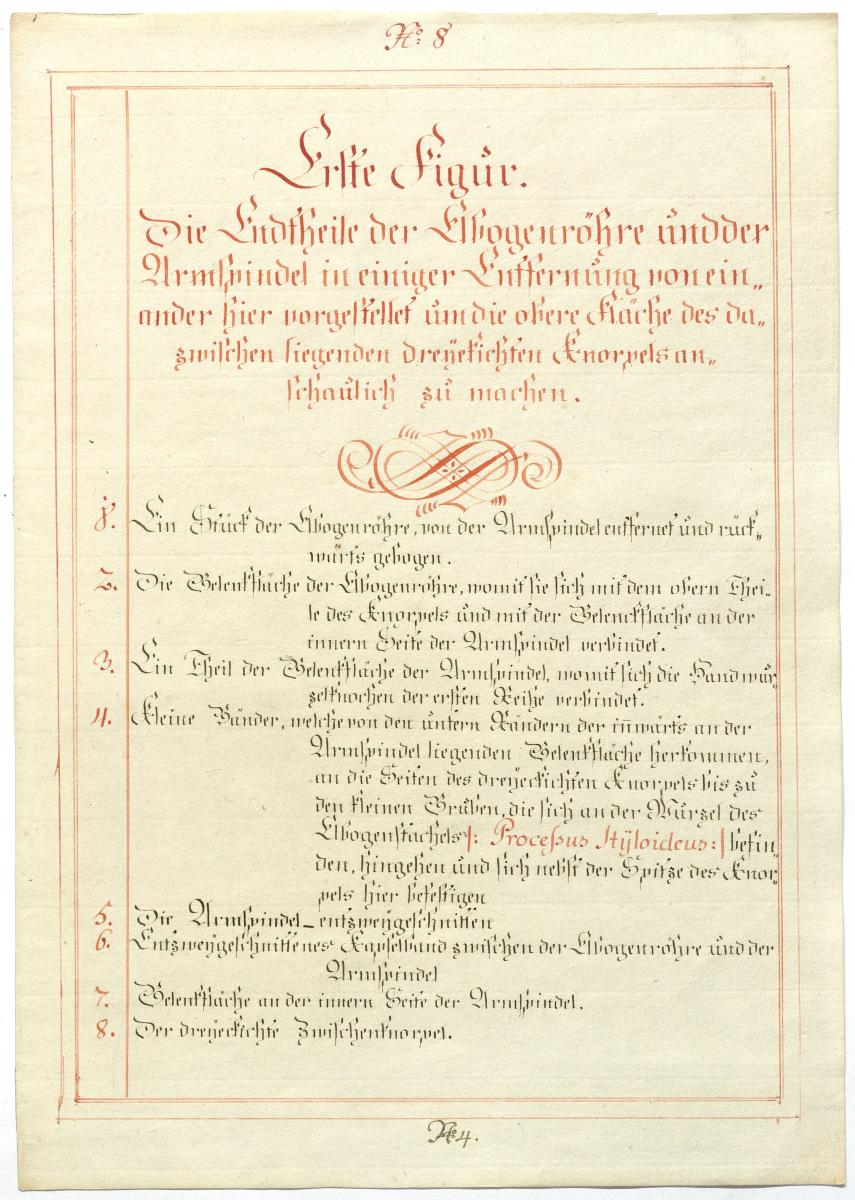 No: 8
Erste Figur.
Die Endtheile der Elbogenröhre und der
Armspindel in einiger Entfernung von ein„
ander hier vorgestellet um die obere Fläche des da„
zwischen liegenden dreyekichten Knorpels an„
schaulich zu machen.
1. Ein Stück der Elbogenröhre, von der Armspindel entfernet und rück„
wärts gebogen.
2. Die Gelenkfläche der Elbogenröhre, womit sie sich mit dem obern Thei„
le des Knorpels und mit der Gelenckfläche an der
innern Seite der Armspindel verbindet.
3. Ein Theil der Gelenkfläche der Armspindel, womit sich die Handwur„
zelknochen der ersten Reihe verbindet.
4. Kleine Bänder, welche von den untern Rändern der in̄wärts an der
Armspindel liegenden Gelenkfläche herkommen,
an die Seiten des dreyeckichten Knorpels bis zu
den kleinen Gruben, die sich an der Wurzel des
Elbogenstachels |: Processus Styloideus :| befin„
den, hingehen und sich nebst der Spitze des Knor„
pels hier befestigen
5. Die Armspindel entzweygeschnitten
6. Entzweygeschnittenes Kapselband zwischen der Elbogenröhre und der
Armspindel
7. Gelenkfläche an der innern Seite der Armspindel.
8. Der dreyeckichte Zwischenknorpel.
No 4.